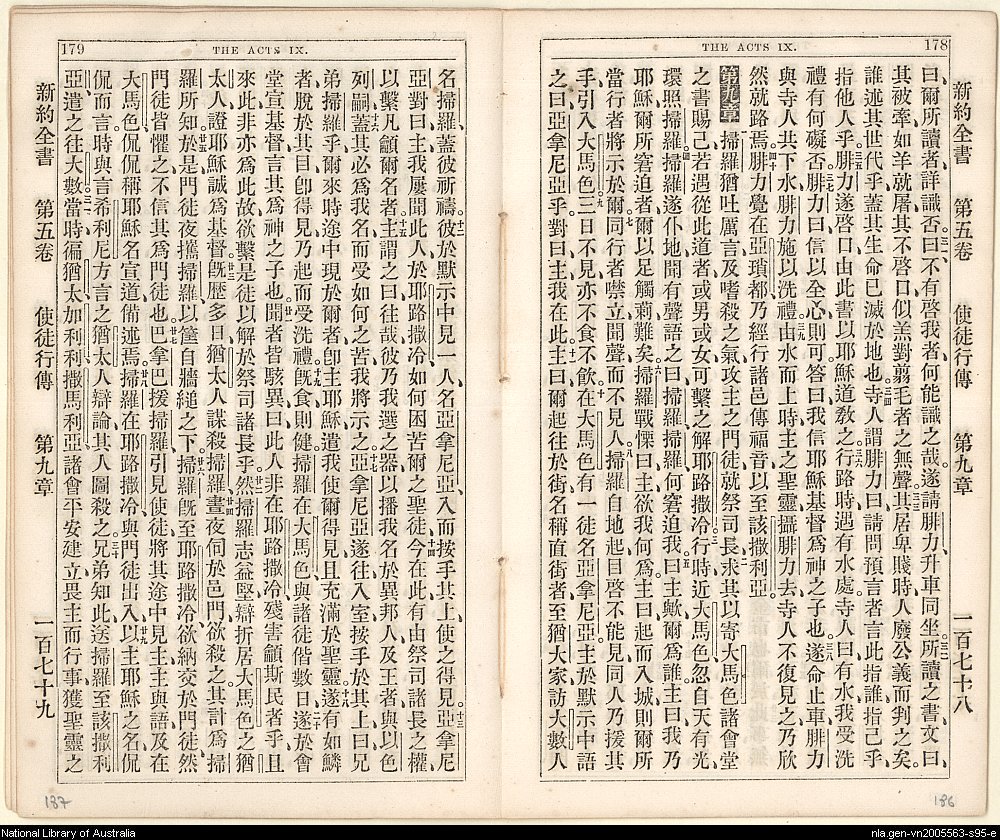 178
THE ACTS IX.
新約全書 第五卷 使徒行傳 第九章 一百七十八
曰、爾所讀者、詳識否。曰、不有啓我者、何能識之哉。遂請腓力升車同坐。所讀之書文曰、
其被牽如羊就屠、其不啓口似羔對翦毛者之無聲。其居卑賤時人廢公義而判之矣。
誰述其世代乎、蓋其生命已滅於地也。寺人謂腓力曰、請問預言者言此指誰指己乎
指他人乎。腓力遂啓口由此書以耶穌道敎之。行路時遇有水處、寺人曰、有水、我受洗
禮有何礙否。腓力曰、信以全心則可。答曰、我信耶穌基督爲神之子也。遂命止車、腓力
與寺人共下水、腓力施以洗禮。由水而上時、主之聖靈攝腓力去、寺人不復見之、乃欣
然就路焉。腓力覺在亞瑣都、乃經行諸邑傳福音、以至該撒利亞。
第九章 掃羅猶吐厲言及嗜殺之氣攻主之門徒、就祭司長、求其以寄大馬色諸會堂
之書賜己、若遇從此道者、或男或女、可繫之解耶路撒冷。行時近大馬色、忽自天有光
環照掃羅、掃羅遂仆地、聞有聲語之曰、掃羅掃羅、何窘迫我。曰、主歟、爾爲誰、主曰、我乃
耶穌、爾所窘迫者、爾以足觸蒺難矣。掃羅戰慄曰、主欲我何爲、主曰、起而入城、則爾所
當行者、將示於爾。同行者噤立、聞聲而不見人。掃羅自地起、目啓不能見、同人乃援其
手、引入大馬色、三日不見、亦不食不飲。在大馬色有一徒名亞拿尼亞、主於默示中語
之曰、亞拿尼亞乎。對曰、主我在此。主曰、爾起往於街名稱直街者、至猶大家訪大數人
186
179
THE ACTS IX.
名掃羅、蓋彼祈禱。彼於默示中見一人、名亞拿尼亞、入而按手其上、使之得見。亞拿尼
亞對曰、主、我屢聞此人於耶路撒冷、如何困苦爾之聖徒、今在此有由祭司諸長之權、
以繫凡籲爾名者。主謂之曰、往哉、彼乃我選之器、以播我名於異邦人、及王者、與以色
列嗣、蓋其必爲我名而受如何之苦、我將示之。亞拿尼亞遂往入室、按手於其上曰、兄
弟掃羅乎、爾來時途中現於爾者、卽主耶穌、遣我使爾得見、且充滿於聖靈。遂有如鱗
者脫於其目、卽得見、乃起而受洗禮。旣食則健、掃羅在大馬色與諸徒偕數日。遂於會
堂宣基督、言其爲神之子也。聞者皆駭異曰、此人非在耶路撒冷、殘害籲斯民者乎、且
來此非亦爲此故、欲繫是徒以解於祭司諸長乎。然掃羅志益堅、辯折居大馬色之猶
太人、證耶穌誠爲基督。旣歷多日、猶太人謀殺掃羅、晝夜伺於邑門、欲殺之、其計爲掃
羅所知。於是門徒夜攜掃羅、以筐自牆縋之下。掃羅旣至耶路撒冷、欲納交於門徒、然
門徒皆懼之、不信其爲門徒也。巴拿巴援掃羅、引見使徒、將其途中見主、主與語、及在
大馬色、侃侃稱耶穌名宣道、備述焉。掃羅在耶路撒冷、與門徒出入、以主耶穌之名、侃
侃而言。時與言希利尼方言之猶太人辯論、其人圖殺之。兄弟知此、送掃羅至該撒利
亞、遣之往大數。當時徧猶太、加利利、撒馬利亞諸會平安、建立、畏主而行事、獲聖靈之
新約全書 第五卷 使徒行傳 第九章 一百七十九
187
National Library of Australia
nla.gen-vn2005563-s95-e